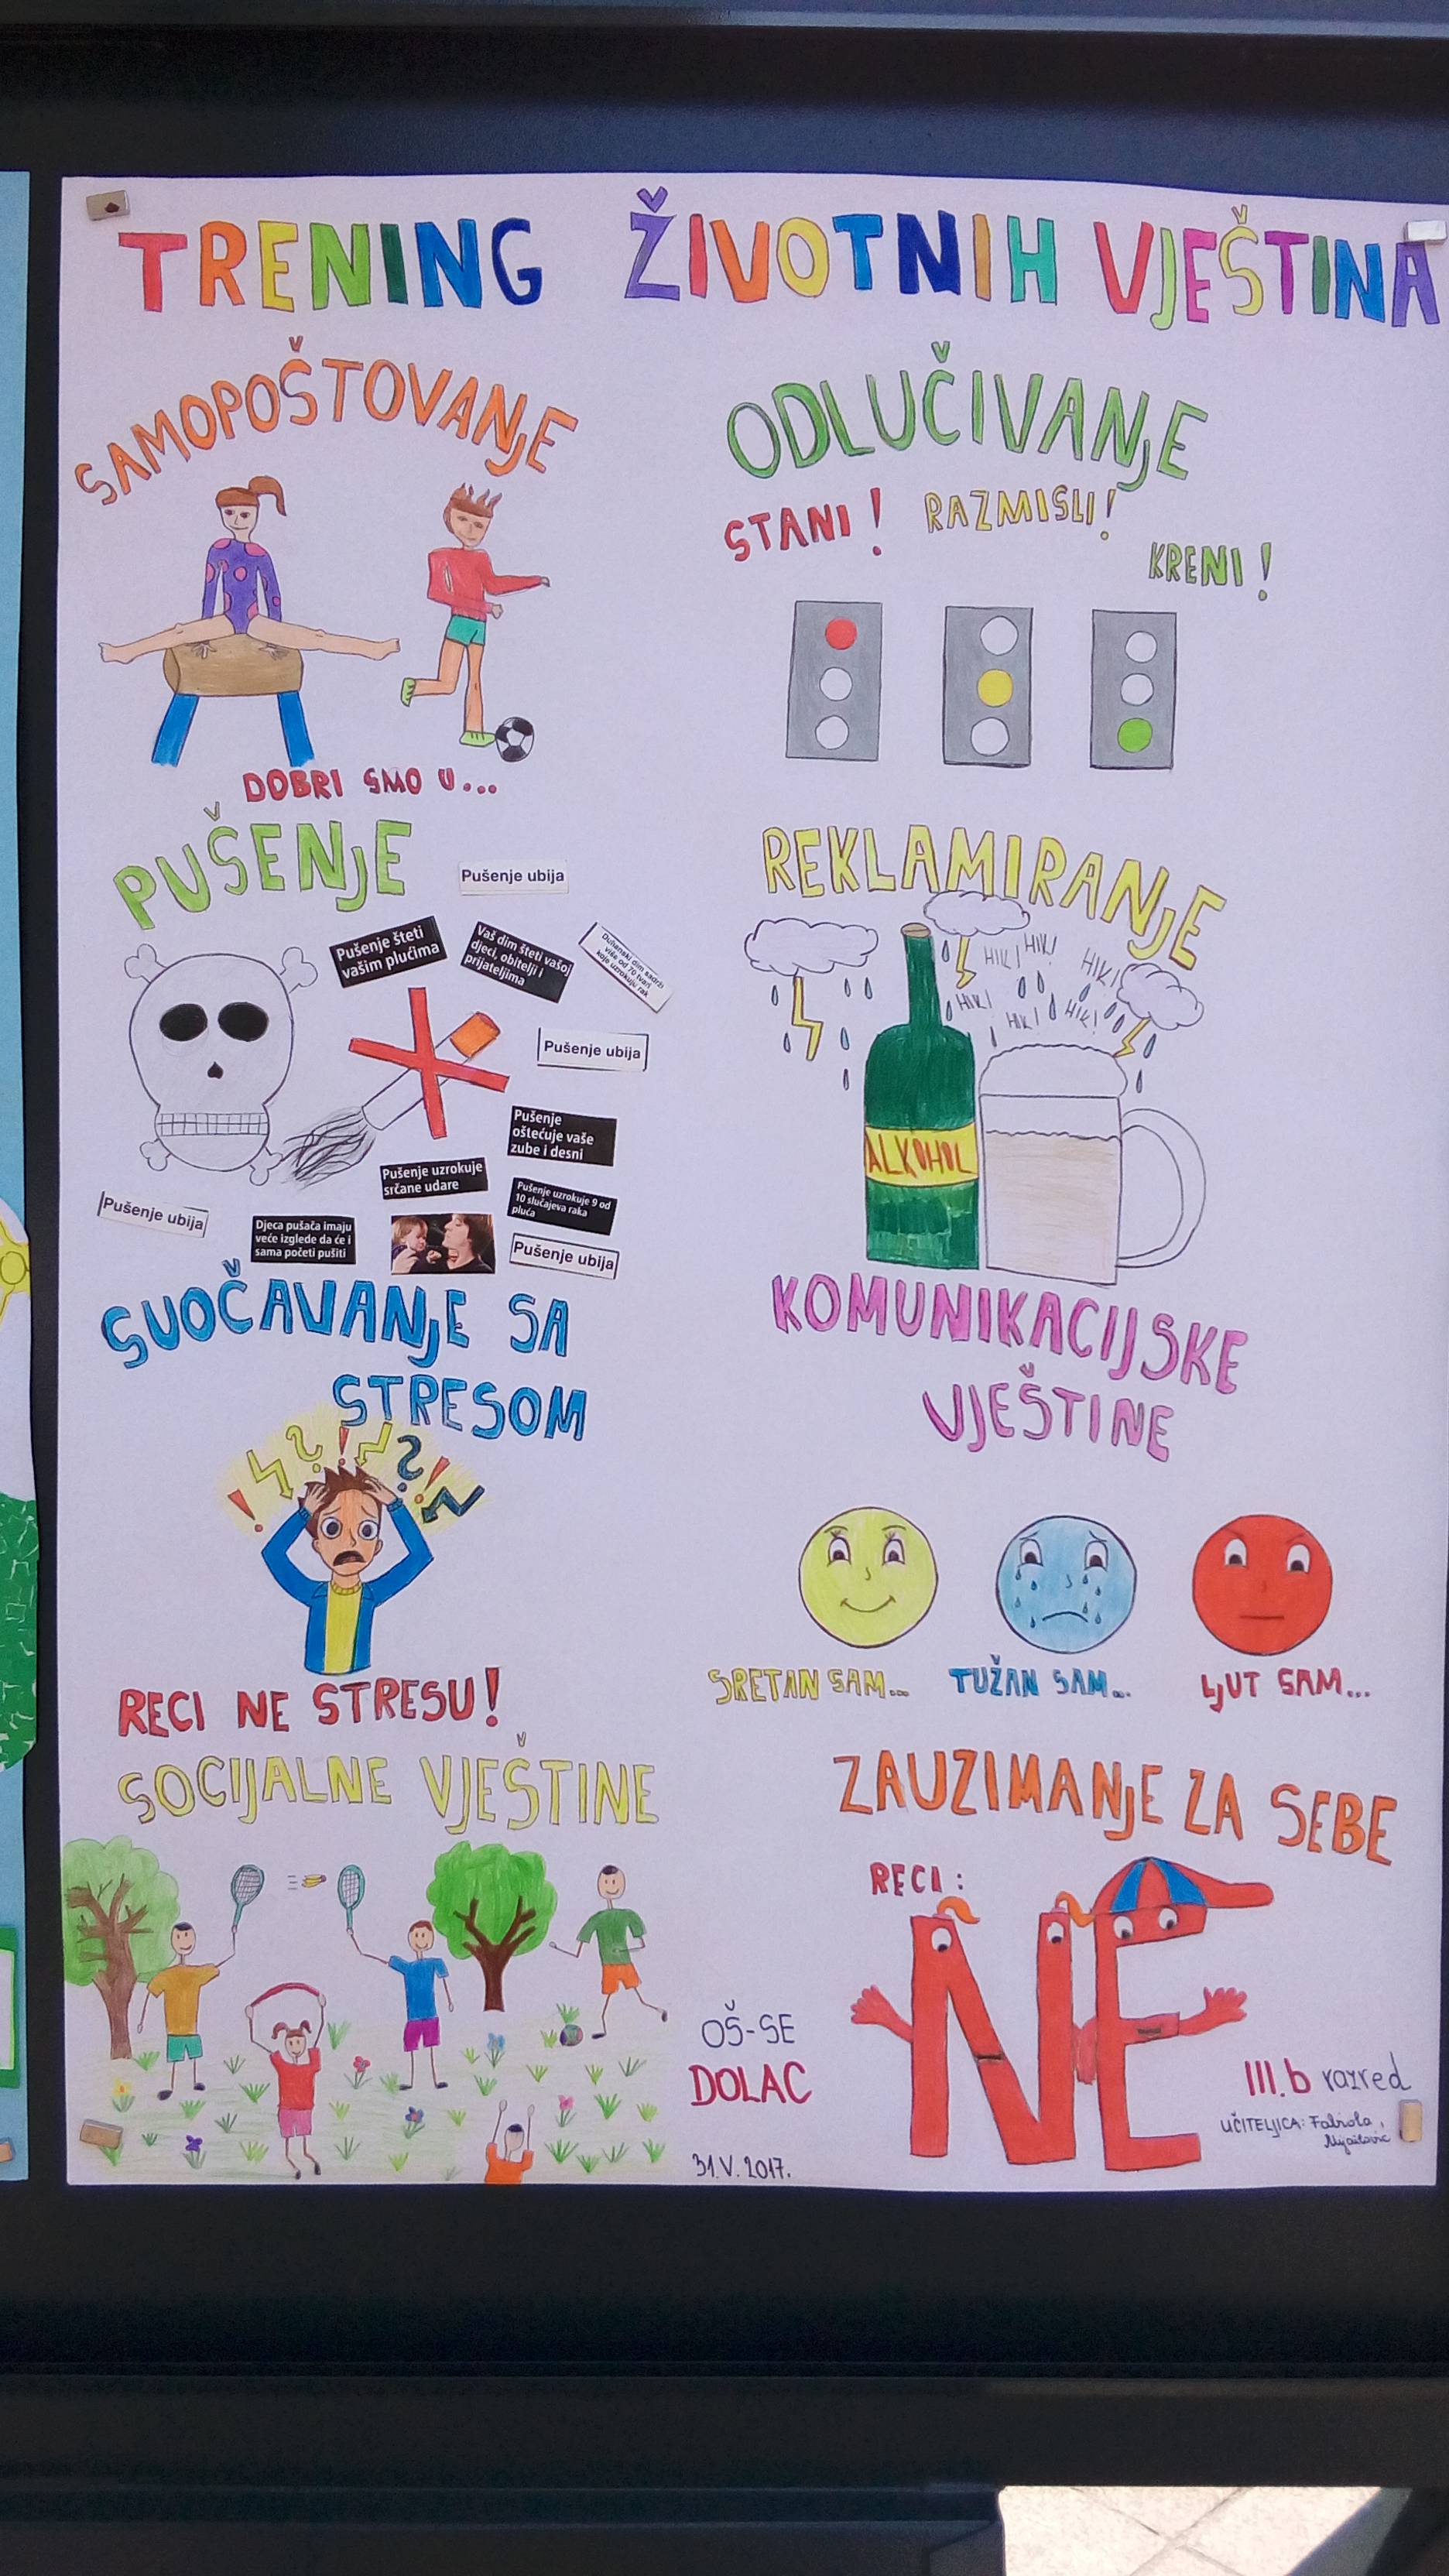 TRENING ŽIVOTNIH VJEŠTINA
SAMOPOŠTOVANJE
DOBRI SMO U...
ODLUČIVANJE
STANI! RAZMISLI!
KRENI!
PUŠENJE
Pušenje ubija
Pušenje šteti
vašim plućima
Vaš dim šteti vašoj
djeci, obitelji i
prijateljima
Duhanski dim sadrži
više od 70 tvari
koje uzrokuju rak
Pušenje ubija
Pušenje
oštećuje vaše
zube i desni
Pušenje uzrokuje
srčane udare
Pušenje uzrokuje 9 od
10 slučajeva raka
pluća
Pušenje ubija
Djeca pušača imaju
veće izglede da će i
sama početi pušiti
Pušenje ubija
REKLAMIRANJE
HIK! HIK!
HIK!
HIK!
HIK!
HIK!
ALKOHOL
SUOČAVANJE SA
STRESOM
RECI NE STRESU!
KOMUNIKACIJSKE
VJEŠTINE
SRETAN SAM...
TUŽAN SAM...
LJUT SAM...
SOCIJALNE VJEŠTINE
ZAUZIMANJE ZA SEBE
RECI:
NE
OŠ-SE
DOLAC
31.V. 2017.
III.b razred
UČITELJICA: Fabiola